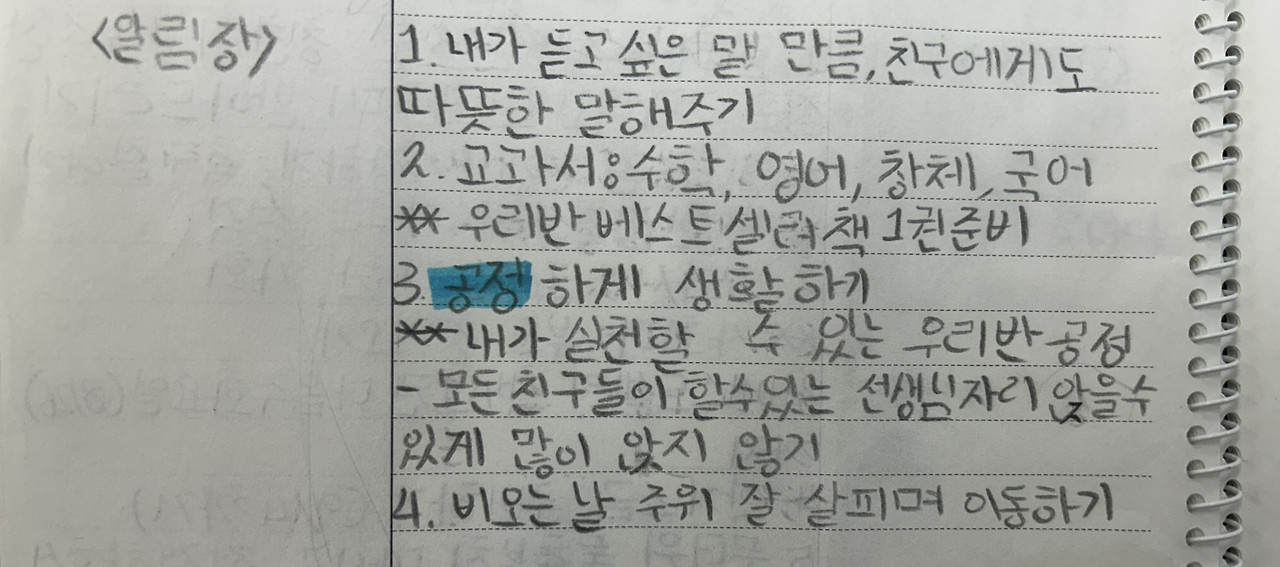 <알림장>
1. 내가 듣고 싶은 말 만큼, 친구에게도
따뜻한 말해주기
2. 교과서: 수학, 영어, 창체, 국어
※※ 우리반 베스트셀러 책 1권준비
3. 공정하게 생활하기
※※ 내가 실천할 수 있는 우리반 공정
- 모든 친구들이 할수있는 선생님자리 앉을수
있게 많이 앉지 않기
4. 비오는 날 주위 잘 살피며 이동하기